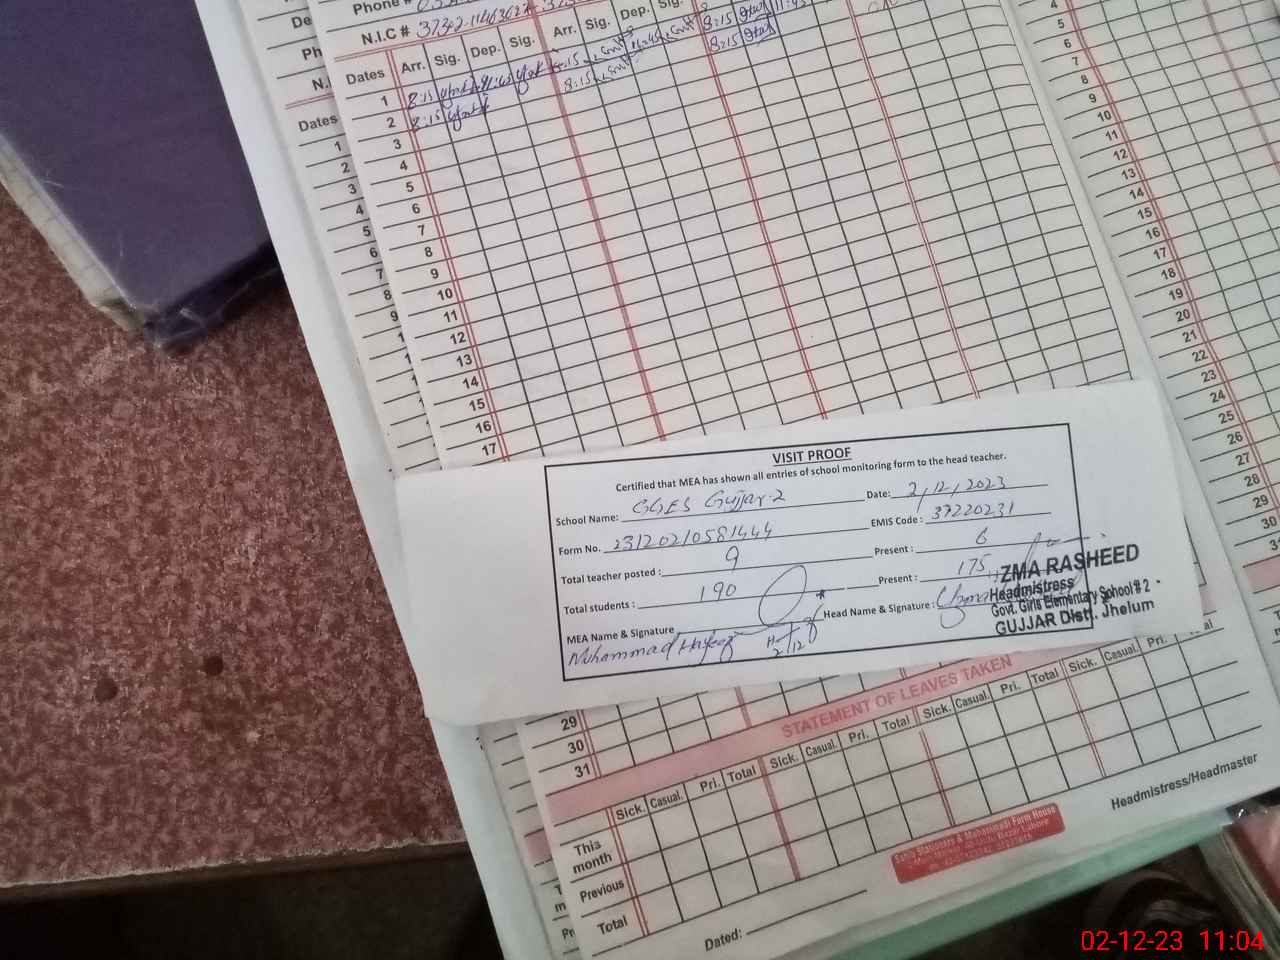 Phone #
N.I.C #
Dates Arr. Sig. Dep. Sig. Arr. Sig. Dep. Sig.
1 8:15
2 8:15 8:15 8:15
3
4
5
6
7
8
9
10
11
12
13
14
15
16
17
VISIT PROOF
Certified that MEA has shown all entries of school monitoring form to the head teacher.
School Name: GGES Gujjar-2 Date: 2/12/2023
Form No. 23120210581444 EMIS Code: 37220231
Total teacher posted: 9 Present: 6
Total students: 190 Present: 175
MEA Name & Signature Head Name & Signature:
Muhammad Hafeez
2/12
ZMA RASHEED
Headmistress
Govt. Girls Elementary School # 2
GUJJAR Distt. Jhelum
29
30
31
STATEMENT OF LEAVES TAKEN
Sick. Casual. Pri. Total Sick. Casual. Pri. Total Sick. Casual. Pri. Total Sick. Casual. Pri.
This month
Previous
Total
Dated:
Headmistress/Headmaster
Dates
1
2
3
4
5
6
7
8
9
4
5
6
7
8
9
10
11
12
13
14
15
16
17
18
19
20
21
22
23
24
25
26
27
28
29
30
02-12-23 11:04